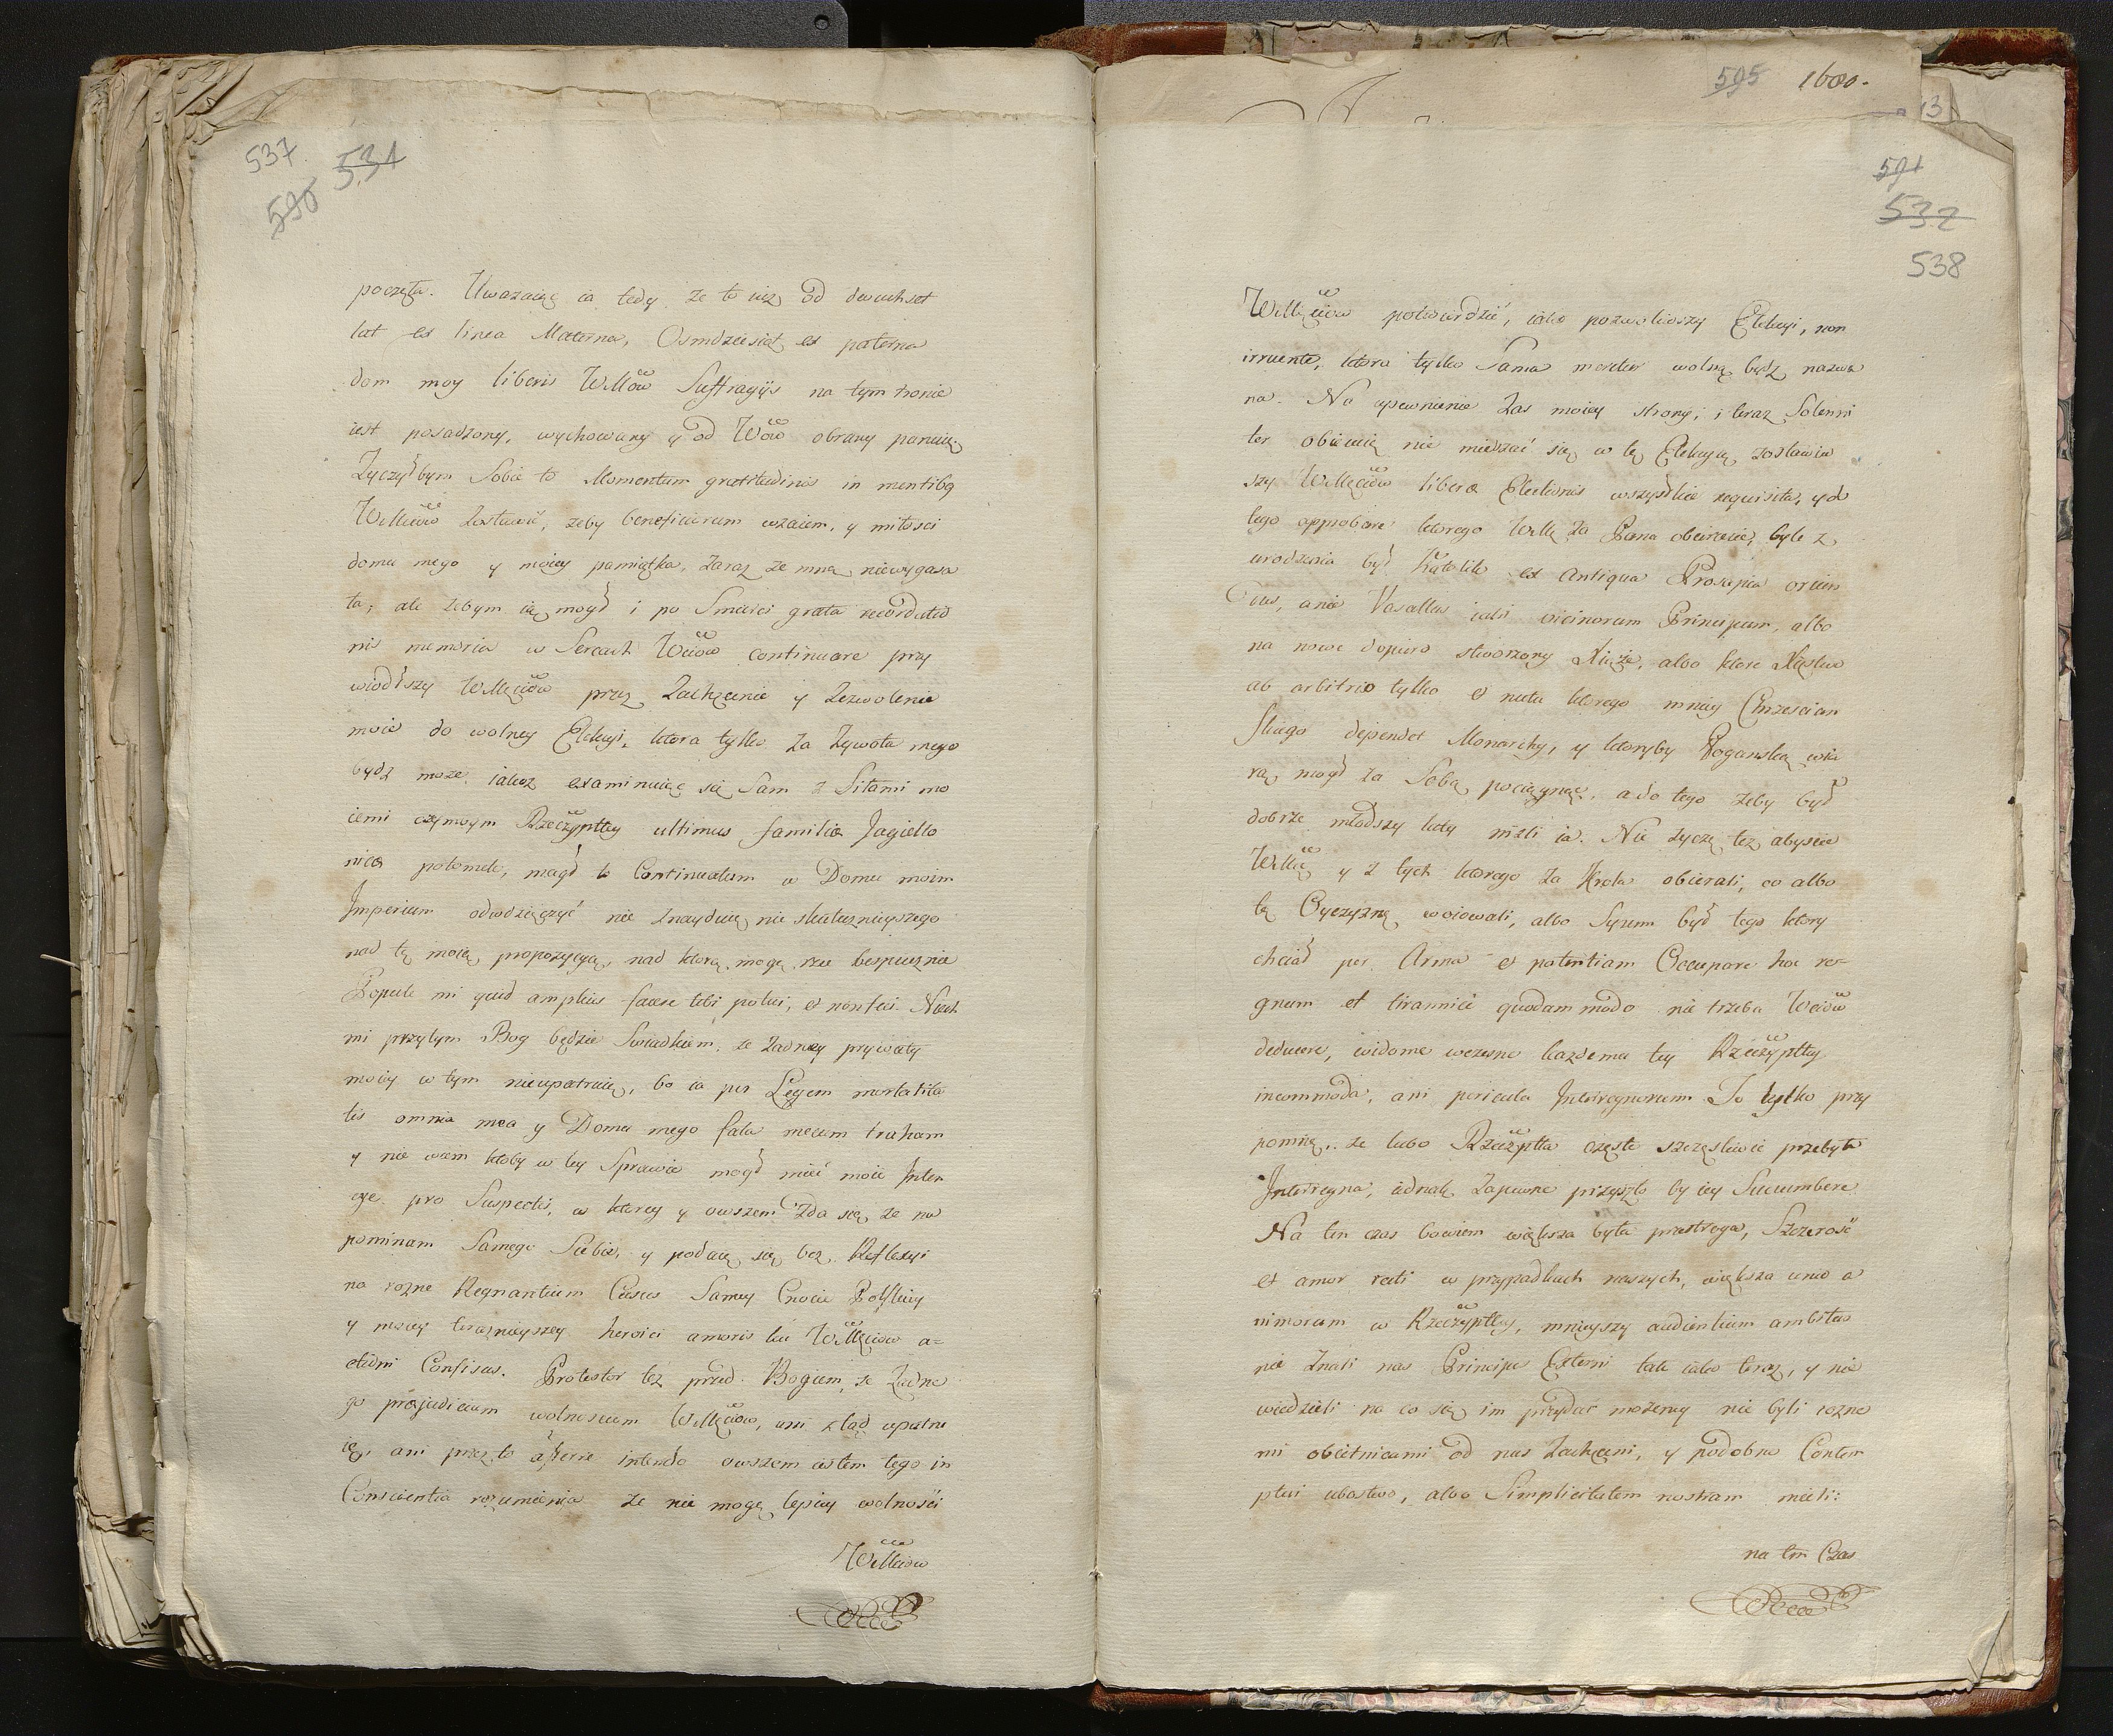 537. 534
590
poczęta. Uwazaiąc ia tedy ze to iuz od dwuchset
lat ex linea Materna, Osmdziesiąt ex paterna
dom moy liberis WMłow Suffragijs na tym tronie
iest posadzony, wychowany y od Wow obrany panuię.
Zyczyłbym Sobie to Momentum gratitudinis in mentibq
WMciow Zostawic, zeby beneficiorum wzaiem, y miłosci
domu mego y moiey pamiątka, Zaraz ze mną niewygasa
ła; ale zebym ią mogł i po Smierci grata recordatio
nis memoria w Sercach Wciow continuare przy
wiodłszy WMęciow przez Zachęcenie y Zezwolenie
moie do wolney Elekcyi, ktora tylko Za Zywota mego
bydz moze, iakoz examinuiąc się Sam z Siłami mo
iemi czymbym Rzeczyptley ultimus familiæ Jagiello
nicæ potomek, mogł to Continuatum w Domu moim
Imperium odwdzięczyć nie znayduię nic skutecznieyszego
nad tę moię propozycyą, nad ktorą mogę rzec bespiecznie
Popule mi quid amplius facere tibi potui, et non feci. Niech
mi przytym Bog będzie Swiadkiem, ze zadney prywaty
moiey w tym nieupatruię, bo ia per Legem mortalita
tis omnia mea y Domu mego fata mecum traham
y nie wiem ktoby w tey Sprawie mogł mieć moie Inten
cye pro Suspectis, w ktorey y owszem Zda się, ze na
pominam Samego Siebie, y podaię się bez Reflexyi
na rozne Regnantium Casus Samey Cnocie Polskiey
y moiey teraznieyszey heroici amoris ku WMęciow a=
ctioni Confisus. Protestor też przed Bogiem, ze Zadne
go præjudicium wolnosciom WMęciow, ani ztąd upatru
ię, ani przez to afferre intendo owszem iestem tego in
Conscientia rozumienia ze nie mogę lepiey wolności
WMciow
595 1680.
13
591
532
538
WMęciow potwierdzić, iako pozwoliwszy Elekcyi, non
irruente, ktora tylko Sama meretur wolną bydz nazwa
na. Na upewnienie Zas moiey strony, i teraz Solenni
ter obiecuię nie mieszać się w tę Elekcyią zostawiw
szy WMęciow liberæ Electionis wszystkie requisita, y do
tego approbare ktorego WMę Za Pana obierzecie, byle z
urodzenia był Katolik ex Antiqua Prosapia oriun
dus, a nie Vasallus iakis vicinorum Principum, albo
na nowe dopiero stworzony Xiąże, albo ktore Xięstwo
ab arbitrio tylko et nutu ktorego mniey Chrzescian
skiego dependet Monarchy, y ktoryby Poganską wia
rę mogł za Sobą pociągnąc, a do tego zeby był
dobrze młodszy laty nizli ia. Nie zyczę tez abyscie
WMć y z tych ktorego za Krola obierali, co albo
tę Oyczyznę woiowali, albo Synem był tego ktory
chciał per Arma et potentiam Occupare hoc re=
gnum et tirannice quodammodo nie trzeba Wciow
deducere, widome wczesne kazdemu tey Rzeczyptley
incommoda, ani pericula Interregnorum To tylko przy
pomnę, ze lubo Rzeczyptla częste szczęsliwie przebyła
Interregna, iednak Zapewne przyszło by iey Succumbere
Na ten czas bowiem większa była przestroga, Szczerość
et amor recti w przypadkach naszych, większa unio a
nimorum w Rzeczyptley, mnieyszy audientium ambitus
nie Znali nas Principes Externi tak iako teraz, y nie
wiedzieli na co się im przydać możemy nie byli rozne
mi obietnicami od nas Zachęceni, y podobno Contem
ptui ubostwo, albo Simplicitatem nostram mieli:
na ten Czas